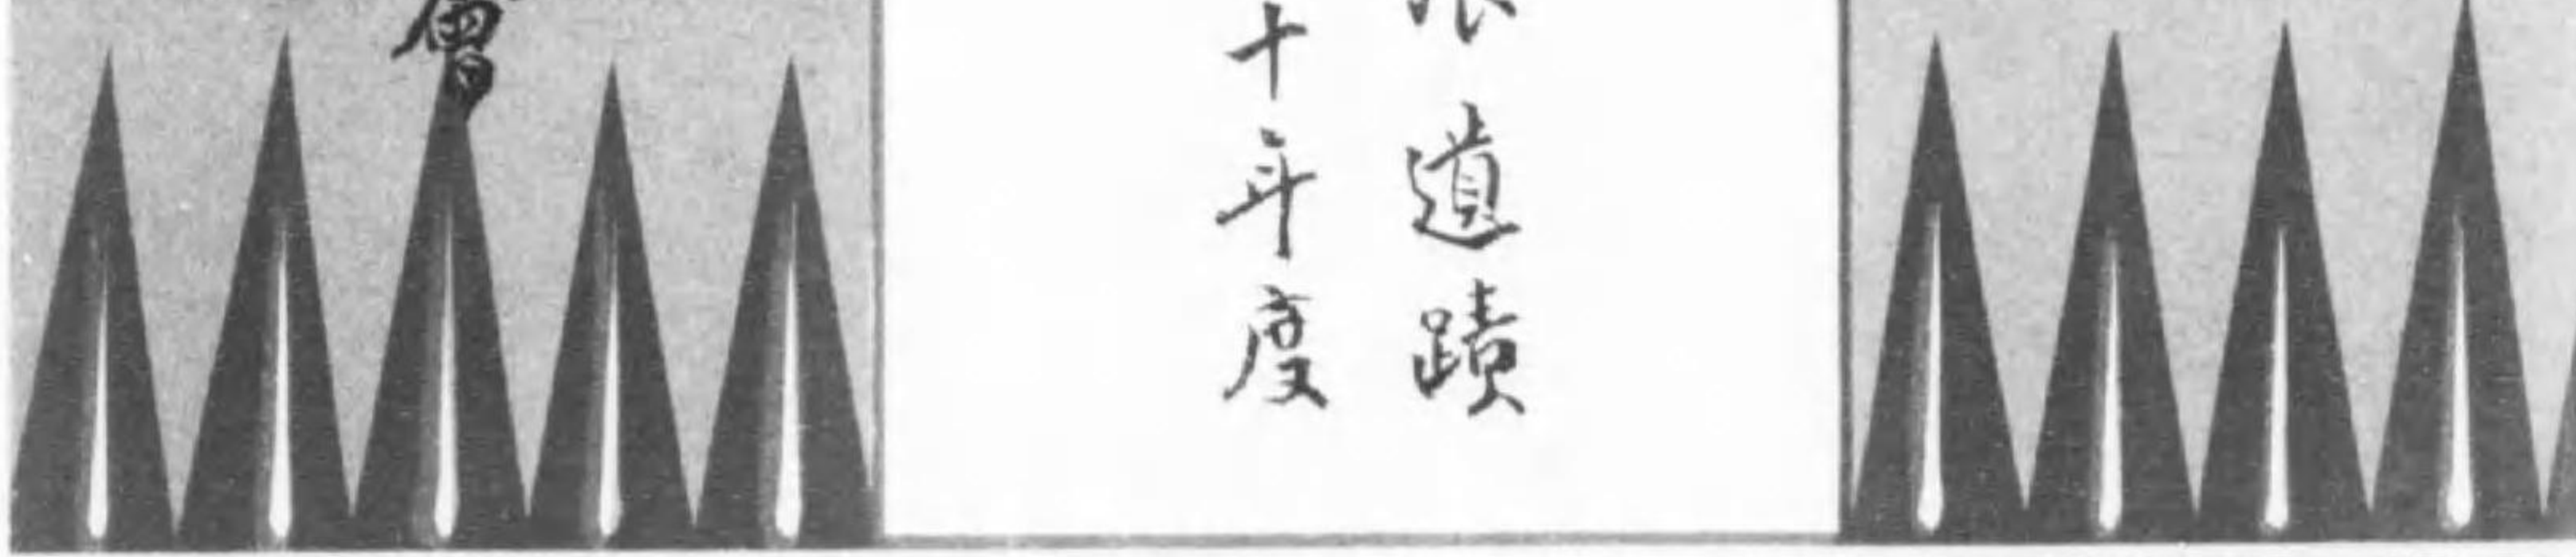 道蹟
十年度
會